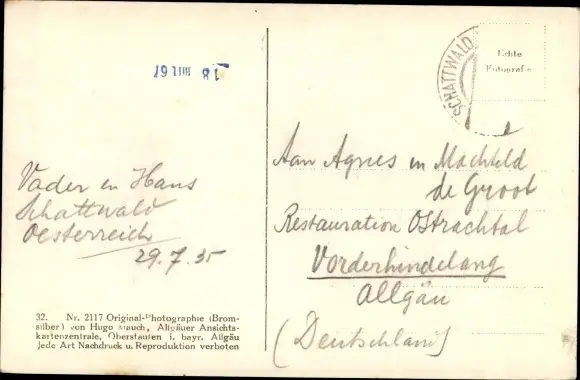 18
SCHATTWALD
Echte
Fotografie
Vader en Hans
Schattwald
Oesterreich
29.7.35
Aan Agnes en Machteld
de Groot
Restauration Ostrachtal
Vorderhindelang
Allgäu
(Deutschland)
32. Nr. 2117 Original-Photographie (Brom-
silber) von Hugo Mauch, Allgäuer Ansichts-
kartenzentrale, Oberstaufen i. bayr. Allgäu
Jede Art Nachdruck u. Reproduktion verboten